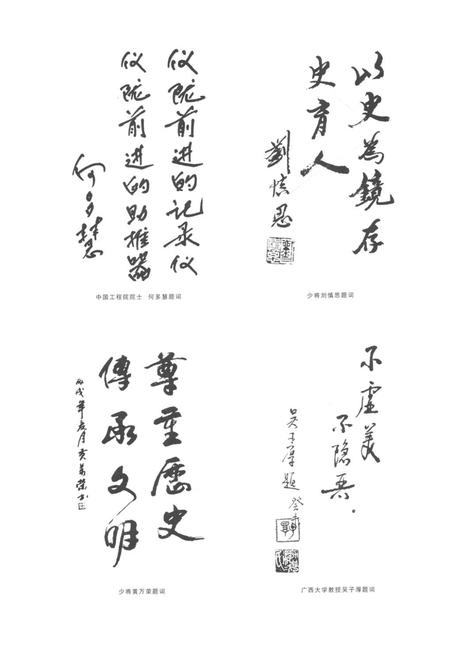 仪陇前进的记录仪
仪陇前进的助推器
何多慧
中国工程院院士 何多慧题词
以史為鏡存
史育人
劉慎思
少将刘慎思题词
尊重歷史
傳承文明
丙戌年 月黄萬榮书
少将黄万荣题词
不虚美
不隐恶.
吴子厚题
广西大学教授吴子厚题词